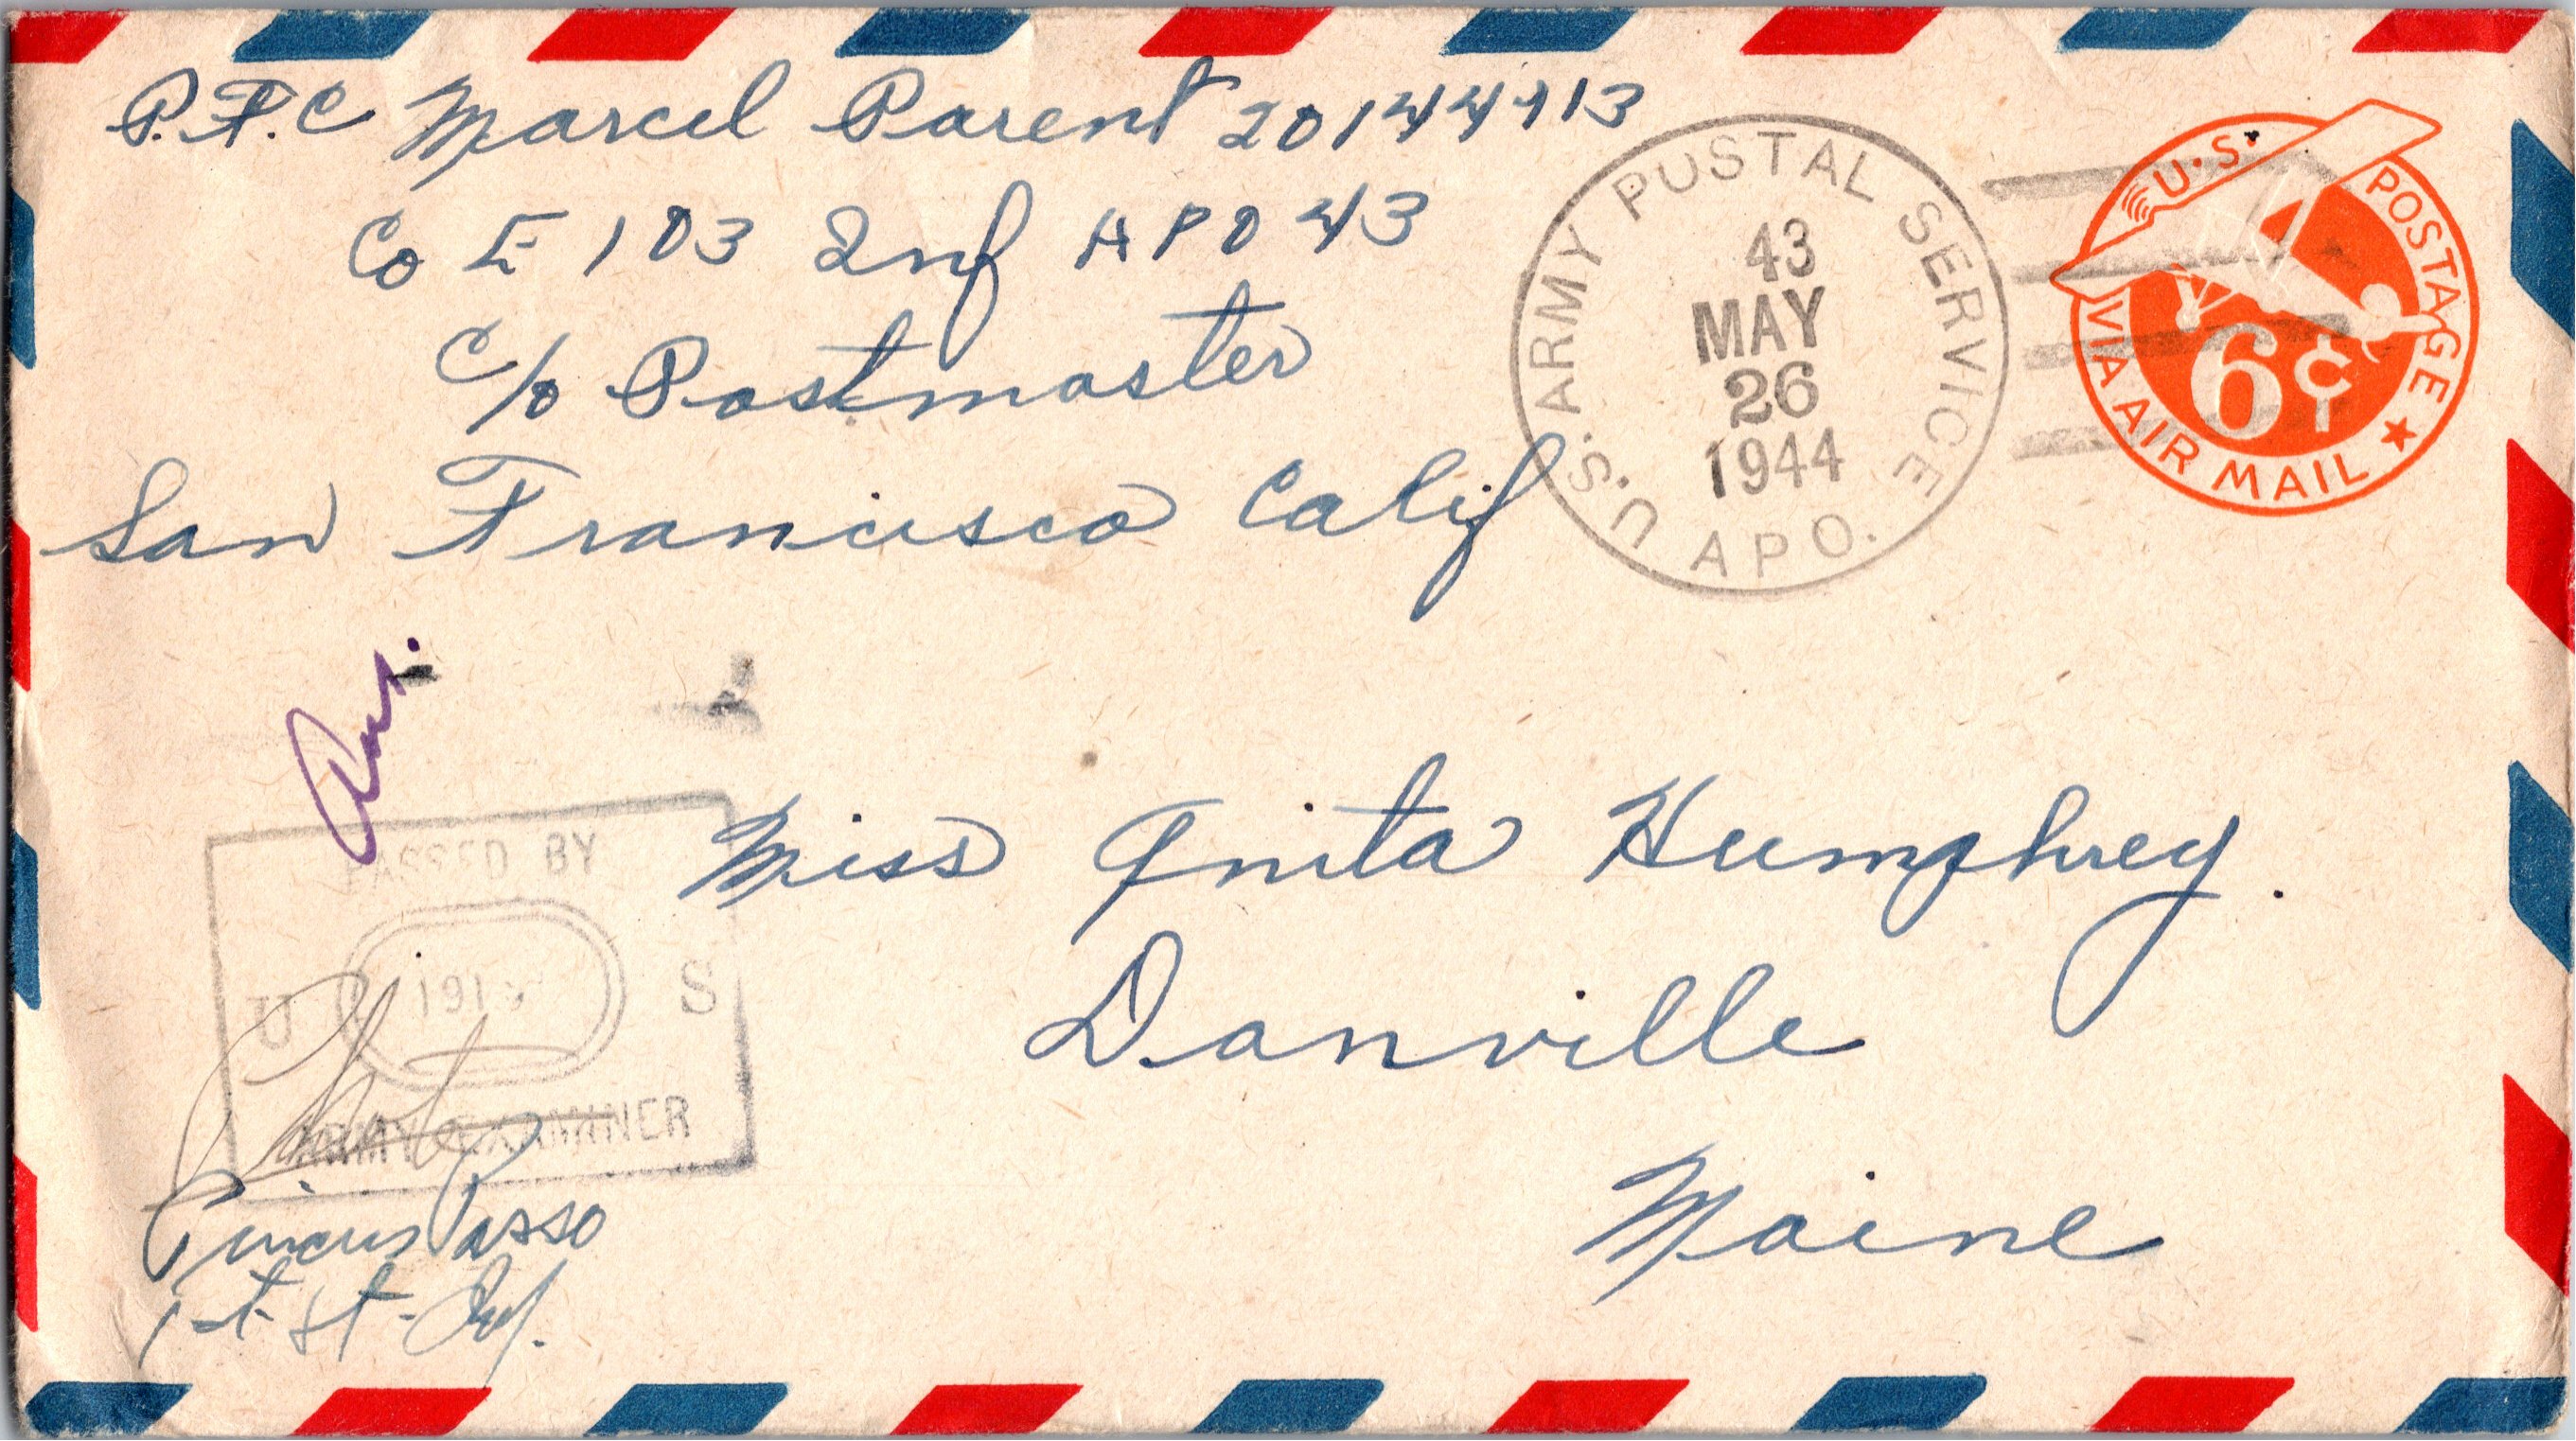 P.F.C Marcel Parent 20144913
Co E 103 Inf APO 43
c/o Postmaster
San Francisco Calif
U.S. ARMY POSTAL SERVICE
43
MAY
26
1944
A P O.
U.S. POSTAGE
VIA AIR MAIL
6¢
Miss Anita Humphrey.
Danville
Maine
PASSED BY
U S
ARMY EXAMINER
1st Lt. Inf.